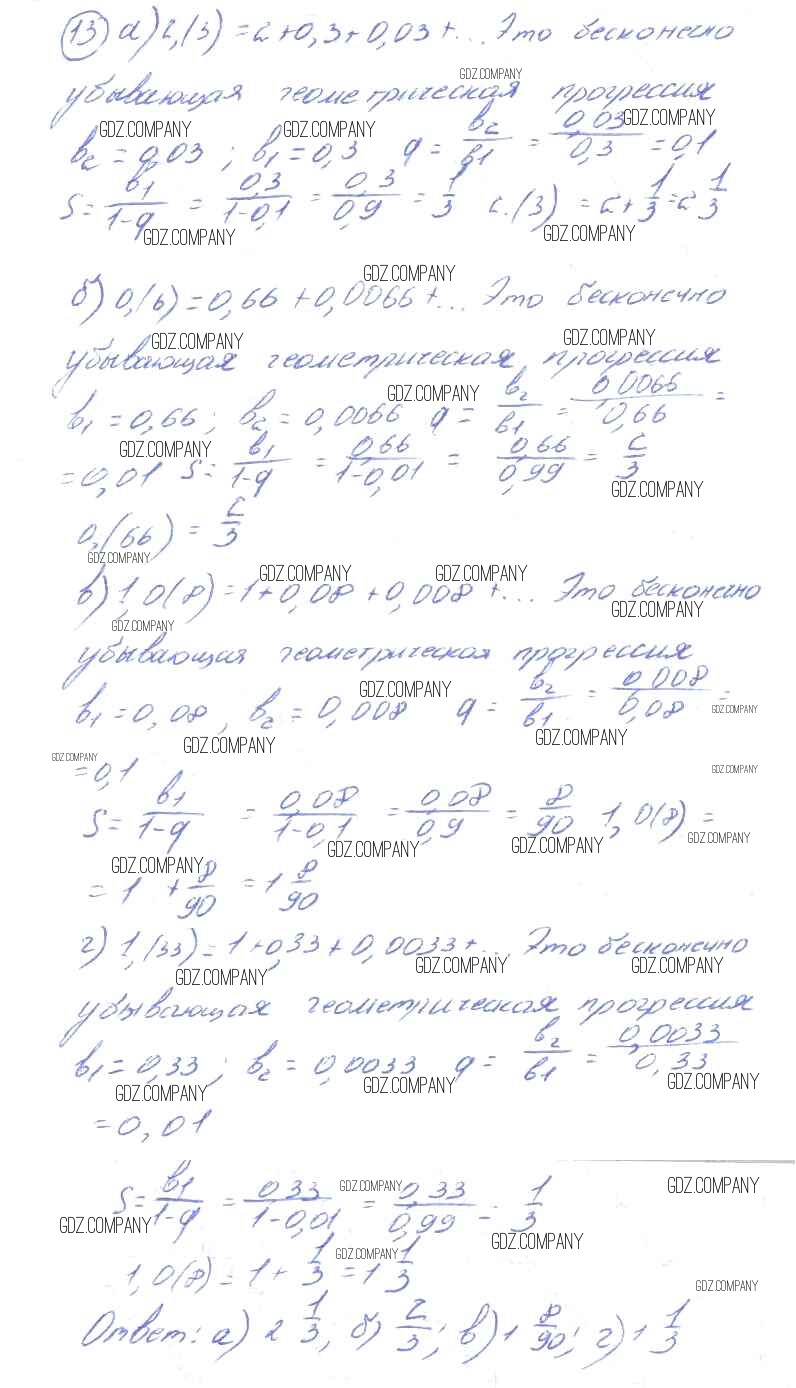 13 а) 2,(3) = 2+0,3+0,03+... Это бесконечно
GDZ.COMPANY
убывающая геометрическая прогрессия
GDZ.COMPANY GDZ.COMPANY GDZ.COMPANY
b2 = 0,03 ; b1 = 0,3 q = b2/b1 = 0,03/0,3 = 0,1
S = b1/(1-q) = 0,3/(1-0,1) = 0,3/0,9 = 1/3 2.(3) = 2+1/3 = 2 1/3
GDZ.COMPANY GDZ.COMPANY
GDZ.COMPANY
б) 0,(6) = 0,66+0,0066+... Это бесконечно
GDZ.COMPANY GDZ.COMPANY
убывающая геометрическая прогрессия
GDZ.COMPANY
b1 = 0,66; b2 = 0,0066 q = b2/b1 = 0,0066/0,66 =
GDZ.COMPANY
= 0,01 S = b1/(1-q) = 0,66/(1-0,01) = 0,66/0,99 = 2/3
GDZ.COMPANY
0,(66) = 2/3
GDZ.COMPANY
GDZ.COMPANY GDZ.COMPANY
в) 1,0(8) = 1+0,08+0,008+... Это бесконечно
GDZ.COMPANY
GDZ.COMPANY
убывающая геометрическая прогрессия
GDZ.COMPANY
b1 = 0,08, b2 = 0,008 q = b2/b1 = 0,008/0,08 =
GDZ.COMPANY
GDZ.COMPANY GDZ.COMPANY
GDZ.COMPANY
= 0,1
GDZ.COMPANY
S = b1/(1-q) = 0,08/(1-0,1) = 0,08/0,9 = 8/90 1,0(8) =
GDZ.COMPANY GDZ.COMPANY GDZ.COMPANY
GDZ.COMPANY
= 1 + 8/90 = 1 8/90
г) 1,(33) = 1+0,33+0,0033+... Это бесконечно
GDZ.COMPANY GDZ.COMPANY GDZ.COMPANY
убывающая геометрическая прогрессия
b1 = 0,33; b2 = 0,0033 q = b2/b1 = 0,0033/0,33
GDZ.COMPANY GDZ.COMPANY GDZ.COMPANY
= 0,01
GDZ.COMPANY GDZ.COMPANY
S = b1/(1-q) = 0,33/(1-0,01) = 0,33/0,99 = 1/3
GDZ.COMPANY GDZ.COMPANY
GDZ.COMPANY
1,0(8) = 1+1/3 = 1 1/3
GDZ.COMPANY
Ответ: а) 2 1/3; б) 2/3; в) 1 8/90; г) 1 1/3